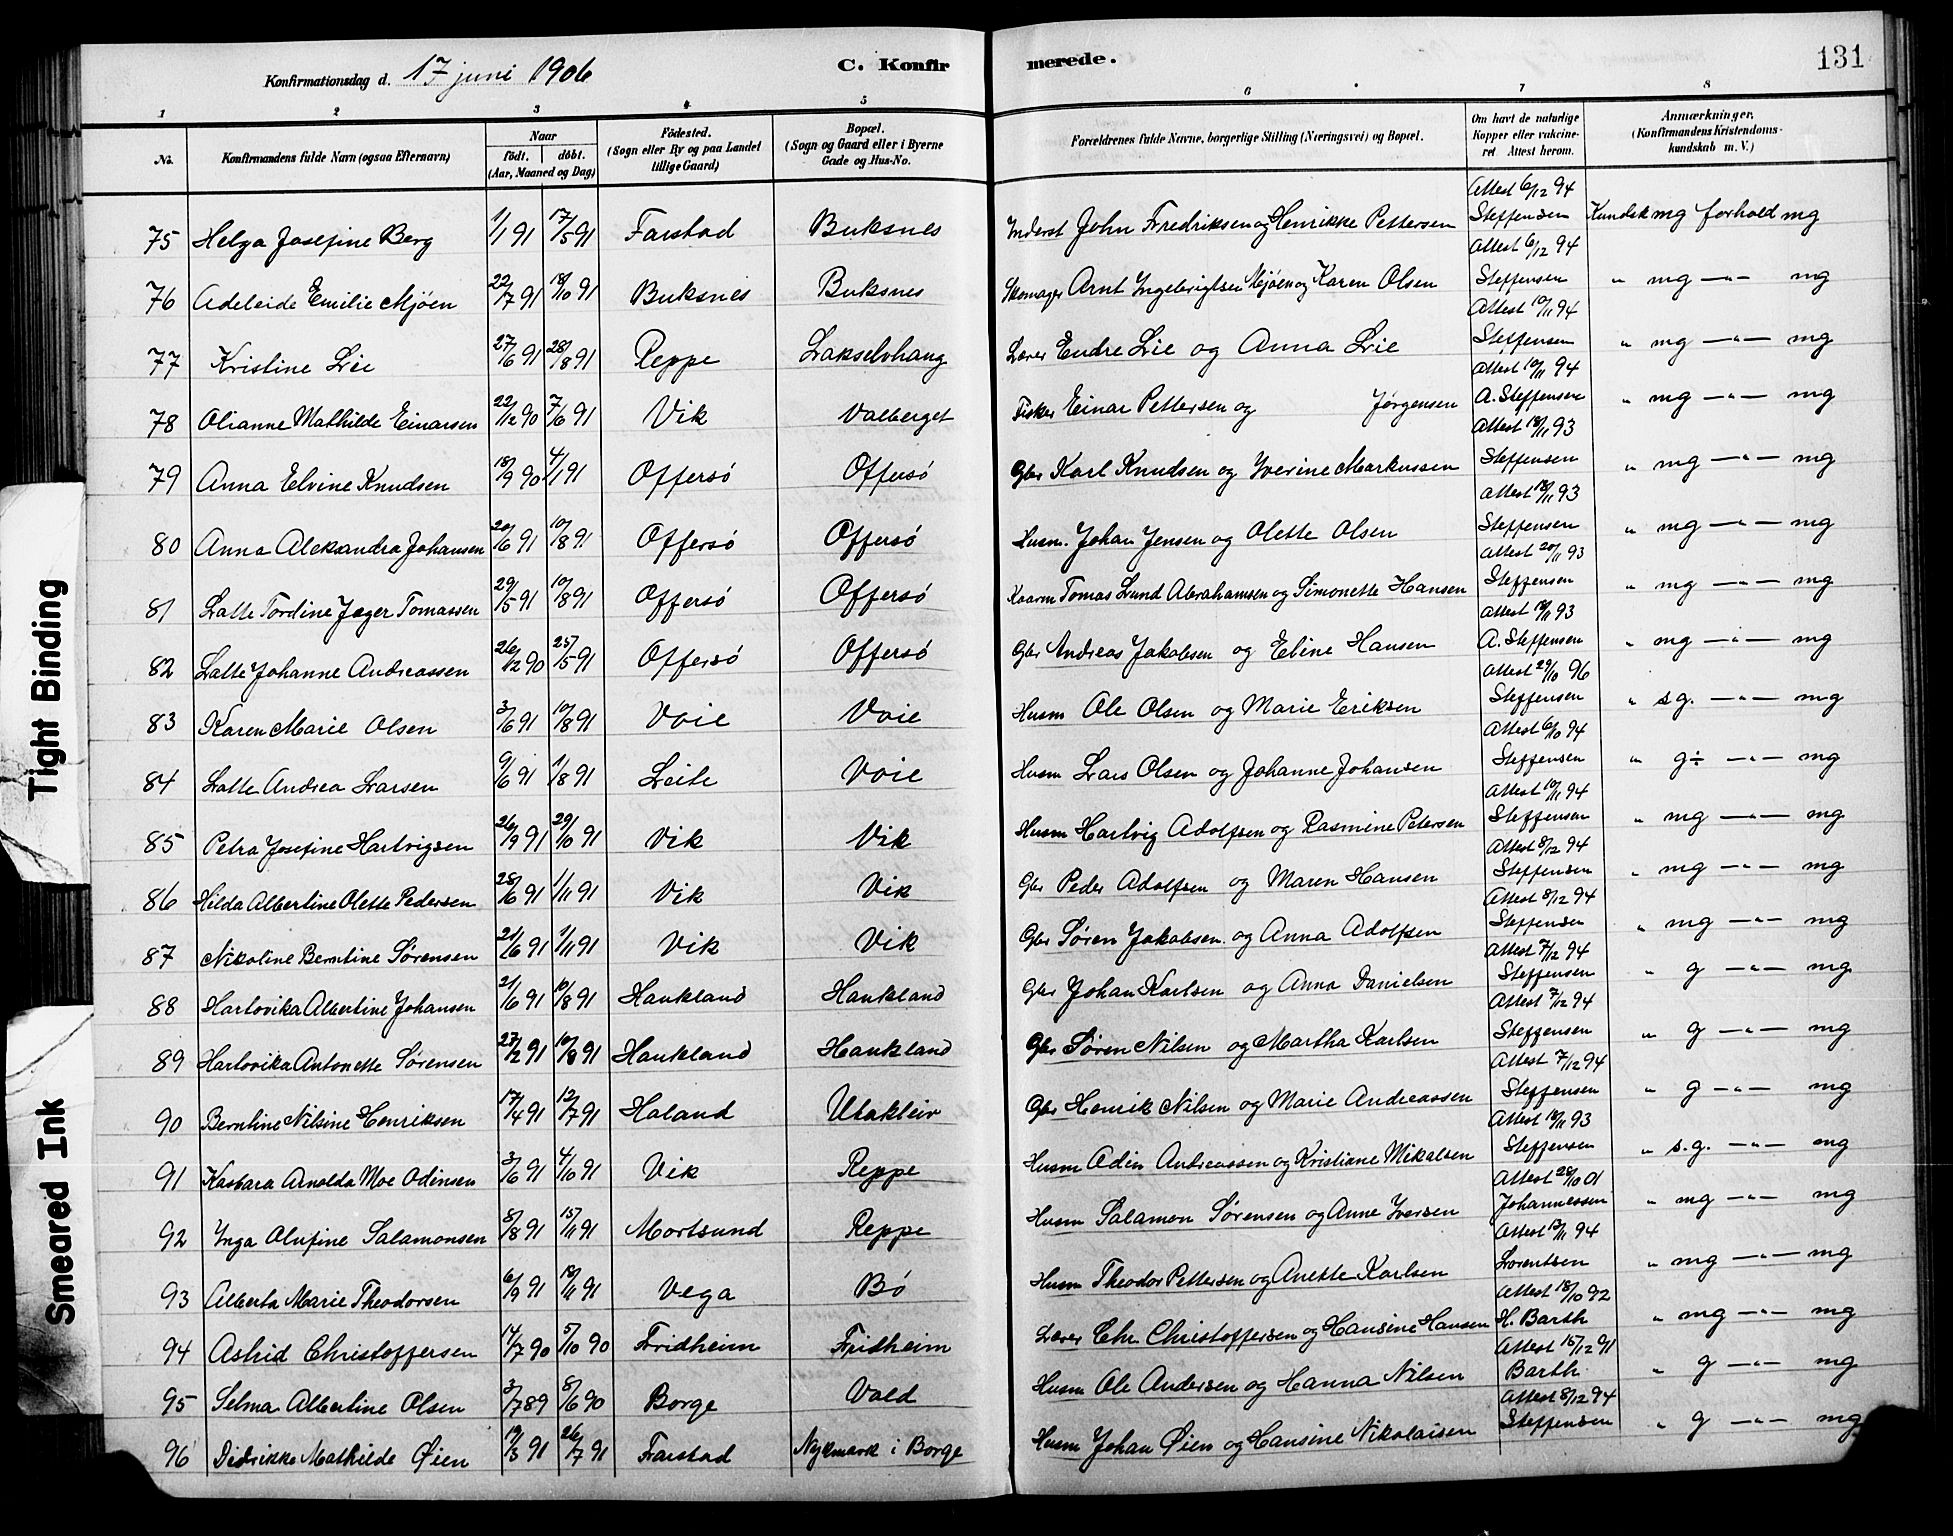 Konfirmationsdag d. 17 juni 1906 C. Konfirmerede. 131
1 2 3 4 5 6 7 8
No. Konfirmandens fulde Navn (ogsaa Efternavn) Naar født. døbt. (Aar, Maaned og Dag) Fødested. (Sogn eller By og paa Landet tillige Gaard) Bopæl. (Sogn og Gaard eller i Byerne Gade og Hus-No. Forældrenes fulde Navne, borgerlige Stilling (Næringsvei) og Bopæl. Om havt de naturlige Kopper eller vakcineret Attest herom. Anmærkninger. (Konfirmandens Kristendomskundskab m. V.)
75 Helga Josefine Berg 1/1 91 17/5 91 Farstad Buksnes Inderst John Fredriksen og Henrikke Pettersen Attest 6/12 94 Steffensen Kundsk mg forhold mg
76 Adeleide Emilie Mjöen 22/7 91 18/10 91 Buksnes Buksnes Skomager Arnt Ingebrigtsen Mjøen og Karen Olsen Attest 6/12 94 Steffensen " mg —"— mg
77 Kristine Lie 27/6 91 28/8 91 Reppe Lakselvhaug Lærer Endre Lie og Anna Lie Attest 10/11 94 Steffensen " mg —"— mg
78 Olianne Mathilde Einarsen 22/12 90 7/6 91 Vik Valberget Fisker Einar Pettersen og Jørgensen Attest 10/11 94 A. Steffensen " mg —"— mg
79 Anna Elvine Knudsen 18/9 90 4/1 91 Offersö Offersö Gbr Karl Knudsen og Iverine Markussen Attest 18/11 93 Steffensen " mg —"— mg
80 Anna Aleksandra Johansen 20/6 91 10/8 91 Offersö Offersö Husm. Johan Jensen og Olette Olsen Attest 18/11 93 Steffensen " mg —"— mg
81 Latte Tordine Jæger Tomassen 29/5 91 10/8 91 Offersö Offersö Kaarm Tomas Lund Abrahamsen og Simonette Hansen Attest 20/11 93 Steffensen " mg —"— mg
82 Latte Johanne Andreassen 26/12 90 25/5 91 Offersö Offersö Gbr Andreas Jakobsen og Eline Hansen Attest 18/11 93 A. Steffensen " mg —"— mg
83 Karen Marie Olsen 3/6 91 10/8 91 Voie Voie Husm Ole Olsen og Marie Eriksen Attest 29/10 96 Steffensen " sg. —"— mg
84 Latte Andrea Larsen 9/6 91 1/8 91 Leite Voie Husm Lars Olsen og Johanne Johansen Attest 6/10 94 Steffensen " g÷ —"— mg
85 Petra Josefine Hartvigsen 26/9 91 29/10 91 Vik Vik Husm Hartvig Adolfsen og Rasmine Petersen Attest 10/11 94 Steffensen " mg —"— mg
86 Hilda Albertine Olette Pedersen 28/6 91 1/11 91 Vik Vik Gbr Peder Adolfsen og Maren Hansen Attest 8/12 94 Steffensen " mg —"— mg
87 Nikoline Berntine Sørensen 21/6 91 1/11 91 Vik Vik Gbr Søren Jakobsen og Anna Adolfsen Attest 8/12 94 Steffensen " mg —"— mg
88 Hartvika Albertine Johansen 21/6 91 10/8 91 Haukland Haukland Gbr Johan Karlsen og Anna Danielsen Attest 7/12 94 Steffensen " g —"— mg
89 Hartvika Antonette Sørensen 27/2 91 10/8 91 Haukland Haukland Gbr Søren Nilsen og Martha Karlsen Attest 7/12 94 Steffensen " g —"— mg
90 Berntine Nilsine Henriksen 17/4 91 12/7 91 Holand Utakleiv Gbr Henrik Nilsen og Marie Andreassen Attest 7/12 94 Steffensen " g —"— mg
91 Kasbara Arnolda Moe Odinsen 3/6 91 4/10 91 Vik Reppe Husm Odin Andreassen og Kristiane Mikalsen Attest 18/11 93 Steffensen " s.g. —"— mg
92 Inga Olufine Salamonsen 8/8 91 15/11 91 Mortsund Reppe Husm Salamon Sørensen og Anne Iversen Attest 28/10 01 Johannessen " mg —"— mg
93 Alberta Marie Theodorsen 6/9 91 18/11 91 Vega Bö Husm Theodor Pettersen og Anette Karlsen Attest 13/11 94 Lorentsen " mg —"— mg
94 Astrid Christoffersen 14/7 90 5/10 90 Fridheim Fridheim Lærer Chr Christoffersen og Hansine Hansen Attest 18/10 92 H. Barth " mg —"— mg
95 Selma Albertine Olsen 3/7 89 8/6 90 Borge Vold Husm Ole Andersen og Hanna Nilsen Attest 15/12 91 Barth " g —"— mg
96 Didrikke Mathilde Øien 19/3 91 26/7 91 Farstad Nykmark i Borge Husm Johan Øien og Hansine Nikolaisen Attest 8/12 94 Steffensen " g —"— mg
Tight Binding
Smeared Ink